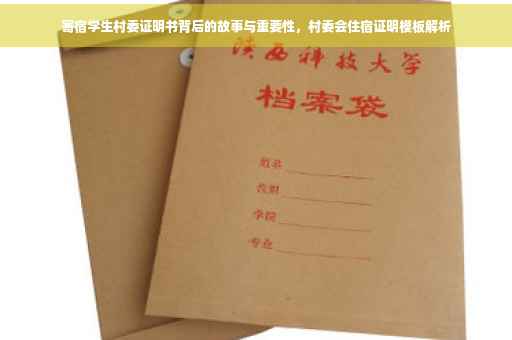 寄宿学生村委证明书背后的故事与重要性，村委会住宿证明模板解析
陕西科技大学
档案袋
学院
专业